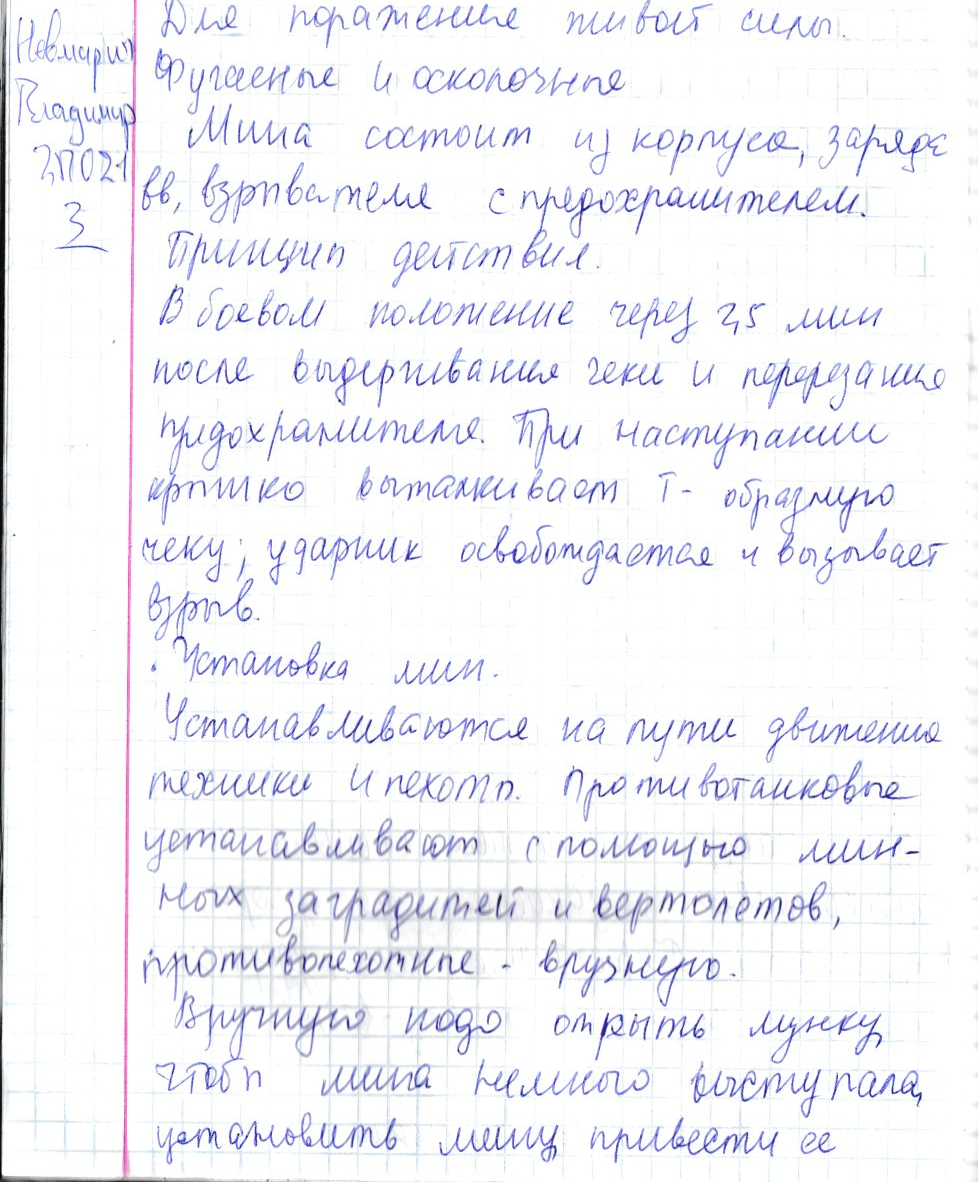 Невмарин
Владимир
2П021
3
Для поражения живой силы.
Фугасные и осколочные
Мина состоит из корпуса, заряда
вв, взрывателя с предохранителем.
Принцип действия.
В боевом положение через 2,5 мин
после выдергивания чеки и перерезания
предохранителя. При наступании
крышка выталкивает Т- образную
чеку, ударник освобождается и вызывает
взрыв.
. Установка мин.
Устанавливаются на пути движения
техники и пехоты. Противотанковые
устанавливают с помощью мин-
ных заградитей и вертолетов,
противопехотные - врузную.
Вручную надо открыть лунку,
чтобы мина немного выступала,
установить мину, привести ее